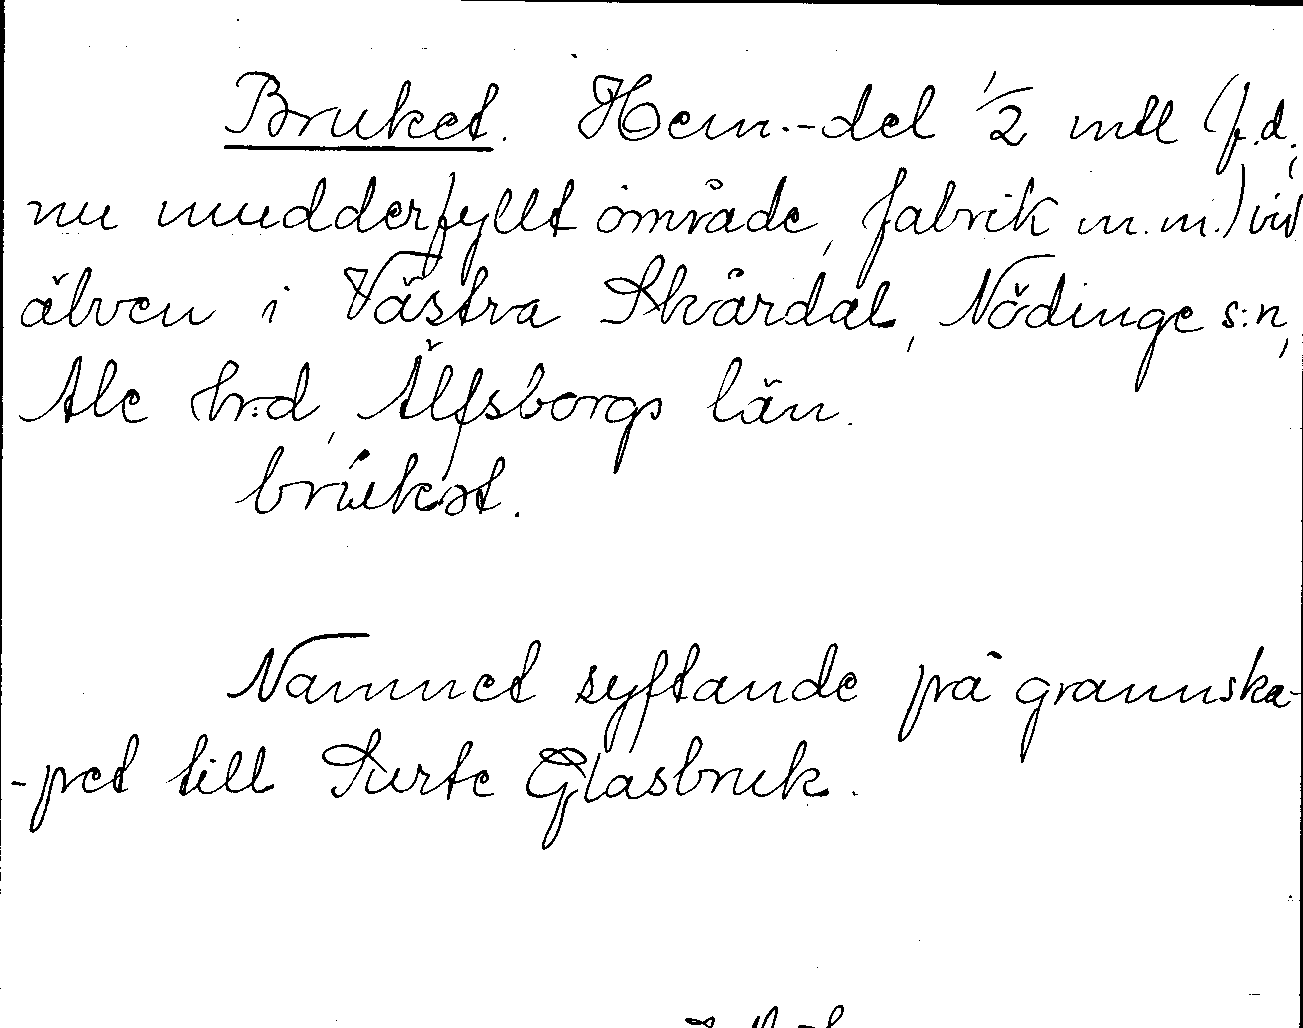 Bruket. Hem.-del 1/2 mtl (f.d.,
nu mudderfyllt område, fabrik m.m.) vid
älven i Västra Skårdal, Nödinge s:n,
Ale h:d, Älfsborgs län.
brukət.
Namnet syftande på grannska-
-pet till Surte Glasbruk.